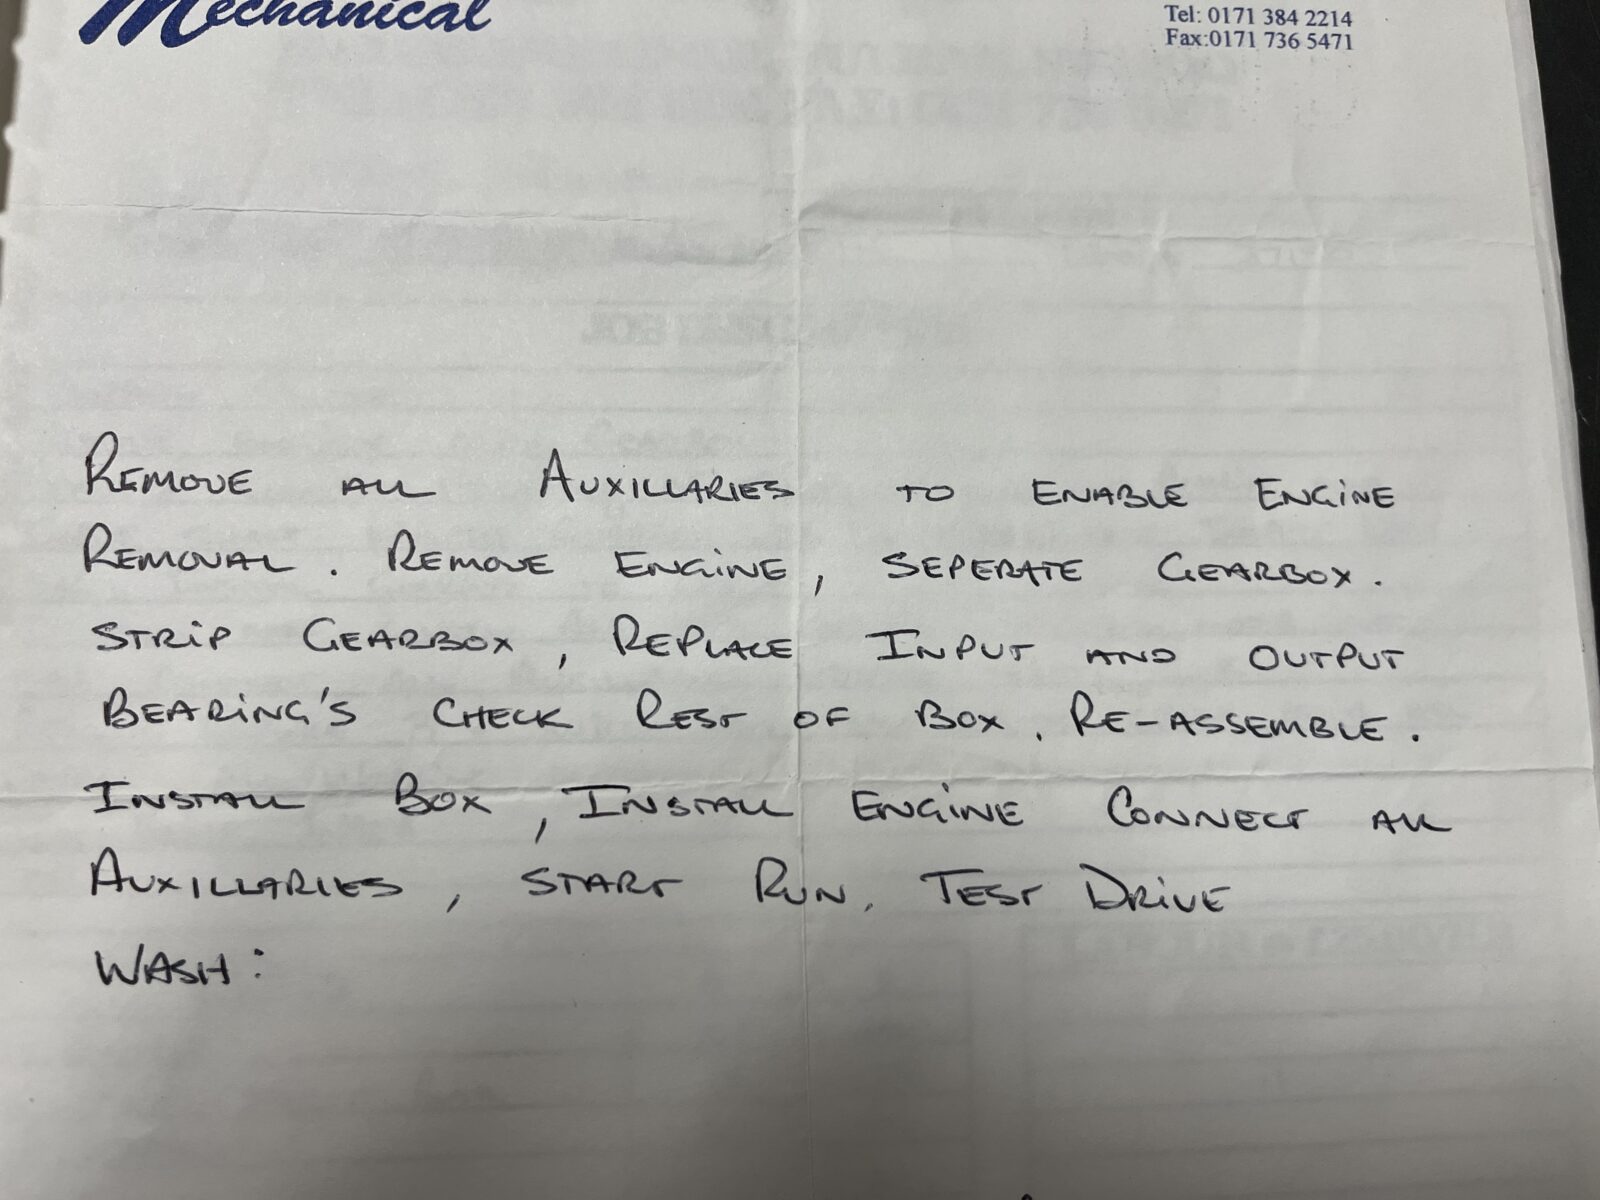 Mechanical
Tel: 0171 384 2214
Fax:0171 736 5471
REMOVE ALL AUXILLARIES TO ENABLE ENGINE
REMOVAL. REMOVE ENGINE, SEPERATE GEARBOX.
STRIP GEARBOX, REPLACE INPUT AND OUTPUT
BEARING'S CHECK REST OF BOX. RE-ASSEMBLE.
INSTALL BOX, INSTALL ENGINE CONNECT ALL
AUXILLARIES, START RUN. TEST DRIVE
WASH: